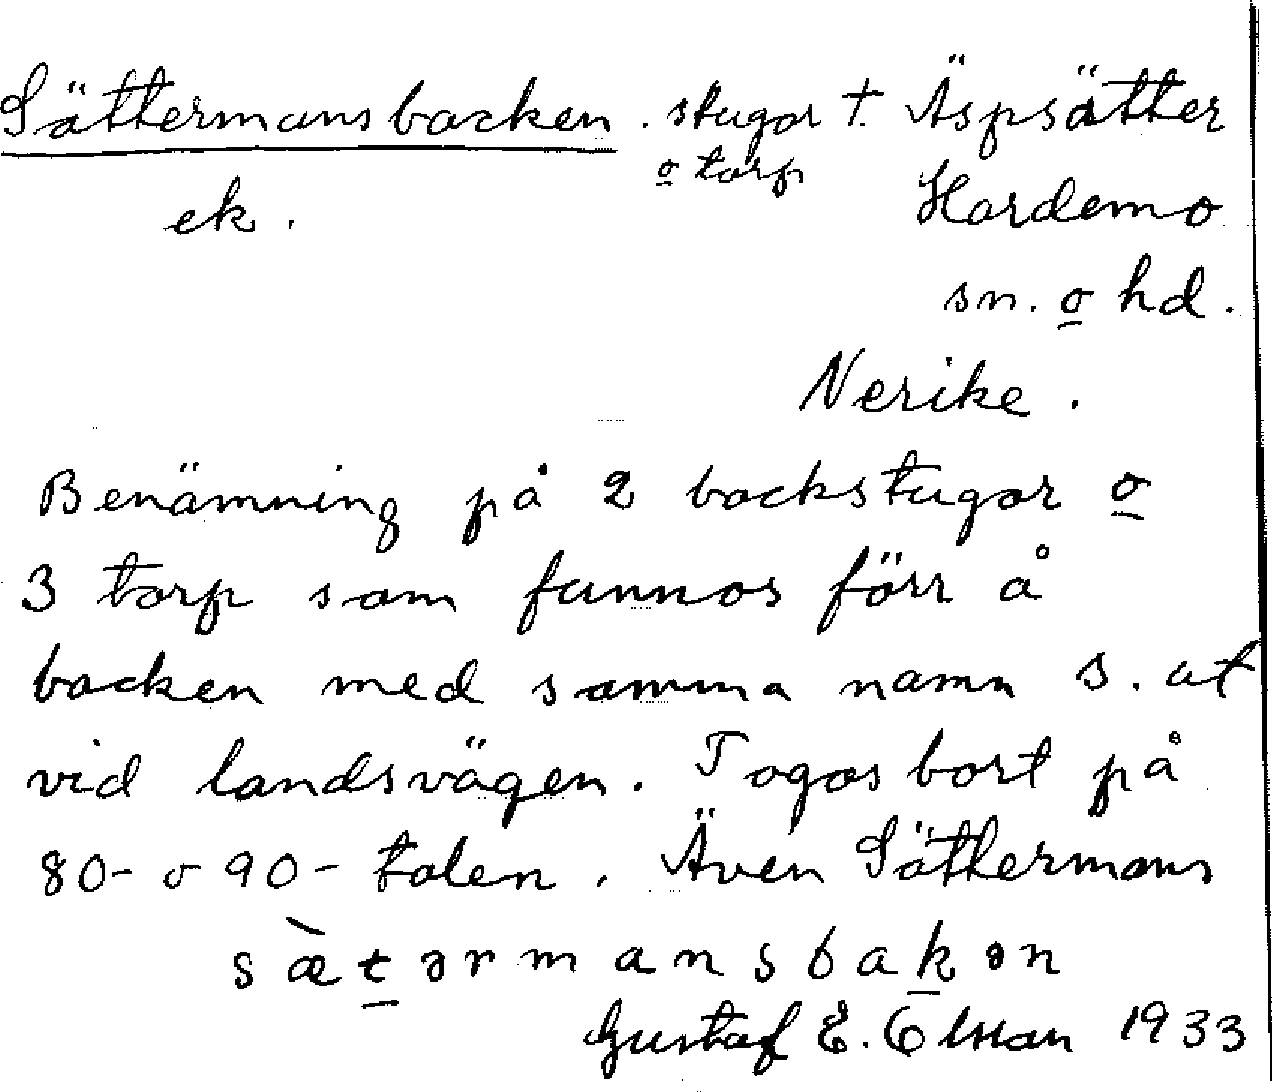 Sättermansbacken. stugor t. Äspsätter
o torp
ek.
Hardemo
sn. o hd.
Nerike.
Benämning på 2 backstugor o
3 torp som funnos förr å
backen med samma namn S. ut
vid landsvägen. Togos bort på
80- o 90-talen. Även Sättermans
sæ̀tərmansbakən
Gustaf E. Olsson 1933